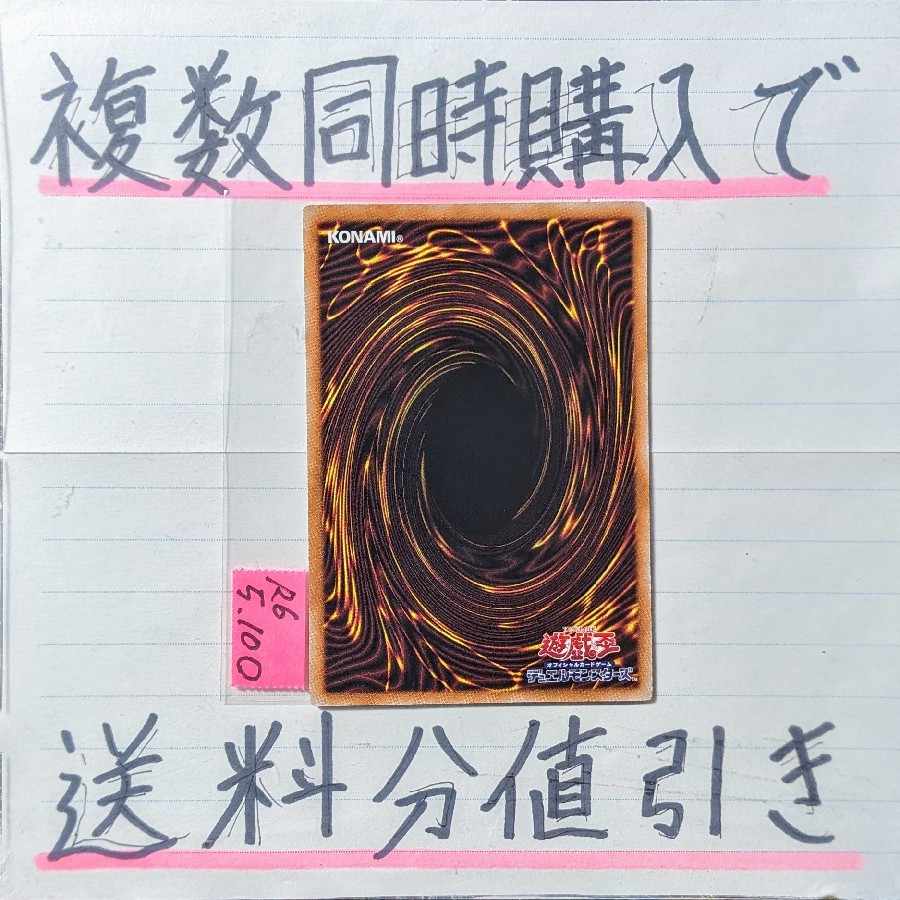 複数同時購入で
KONAMI®
R6
5.100
遊戯王
オフィシャルカードゲーム
デュエルモンスターズ™
送料分値引き